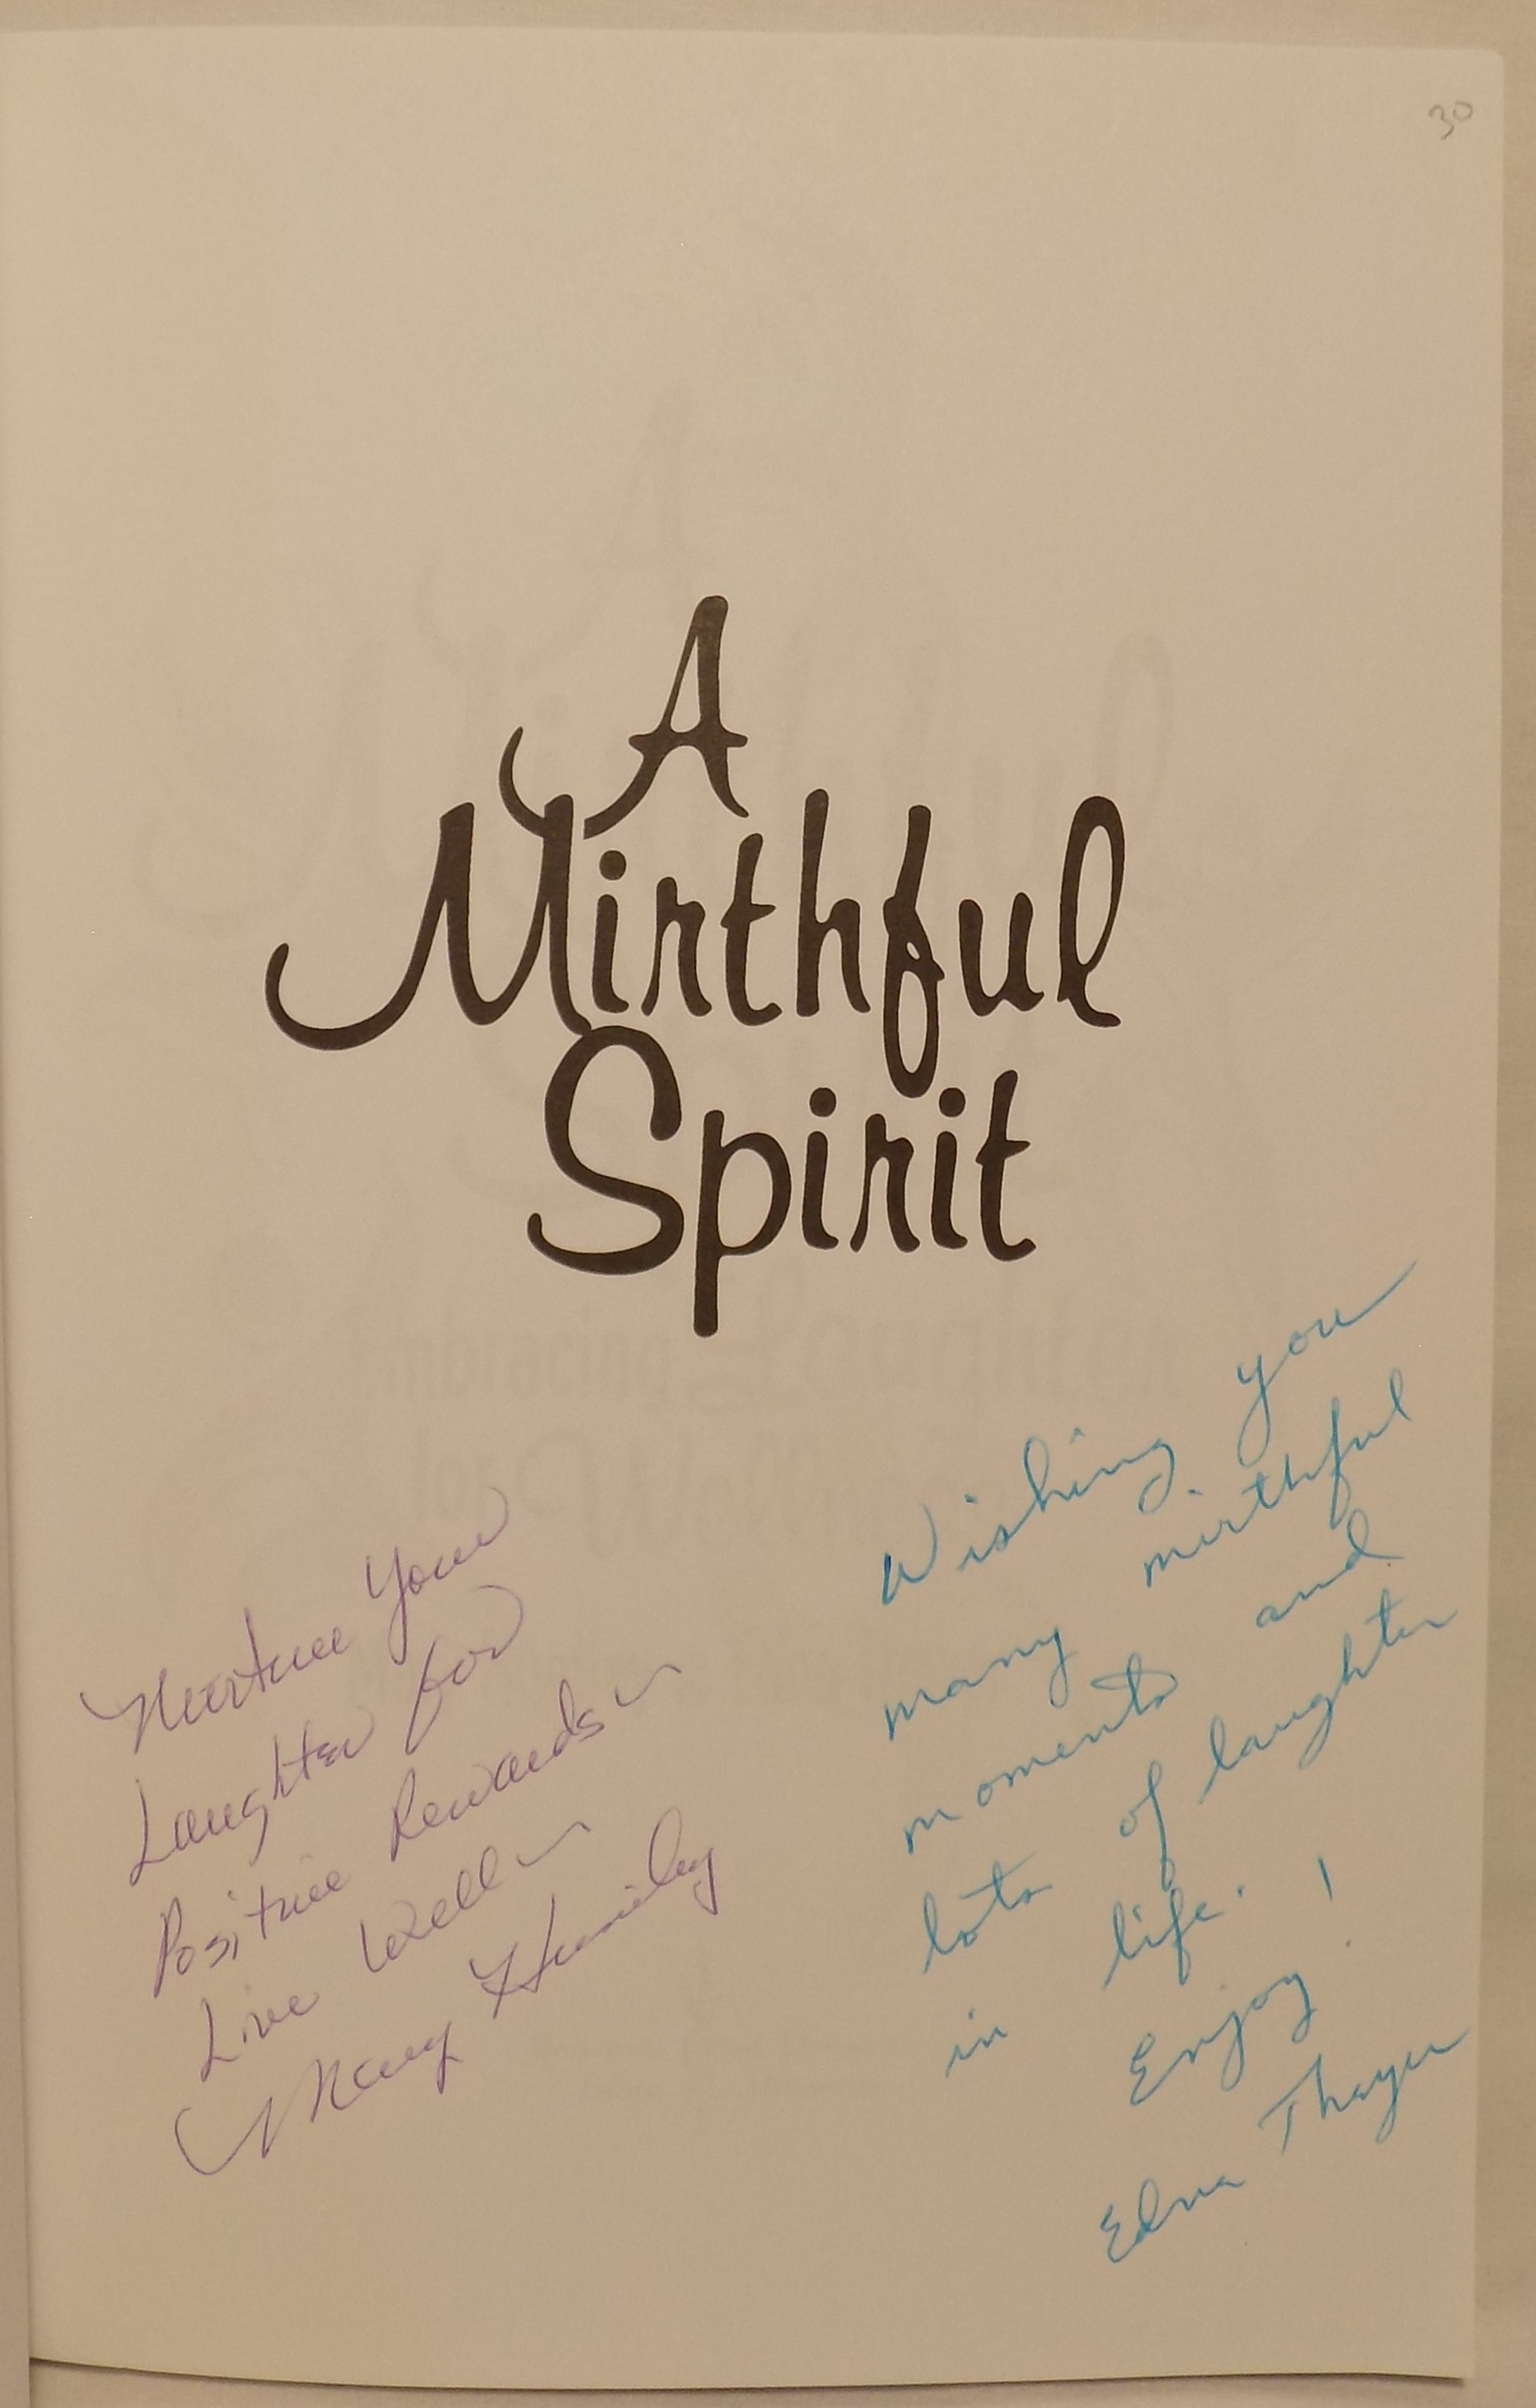 30
A
Mirthful
Spirit
Nurture Your
Laughter for
Positive Rewards
Live Well
Mary Huntley
Wishing you
many mirthful
moments and
lots of laughter
in life.
Enjoy!
Edna Thayer